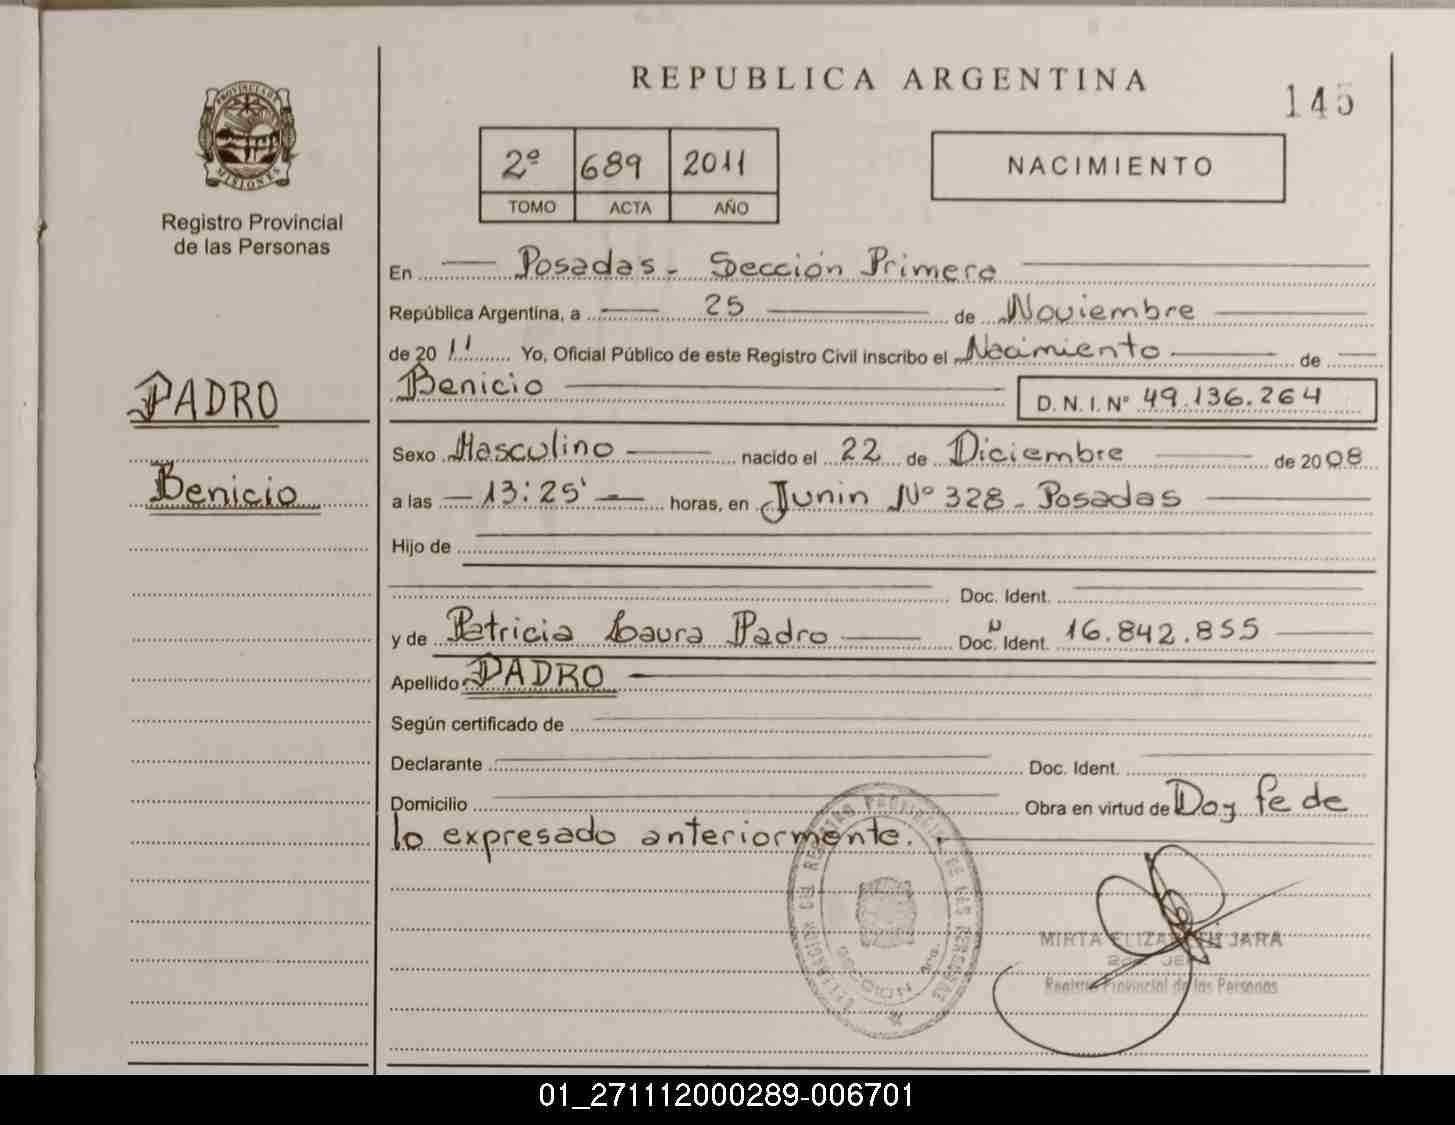 REPUBLICA ARGENTINA
145
PROVINCIA DE
MISIONES
Registro Provincial
de las Personas
2º 689 2011
TOMO ACTA AÑO
NACIMIENTO
En Posadas - Sección Primera
República Argentina, a 25 de Noviembre
de 2011 Yo, Oficial Público de este Registro Civil inscribo el Nacimiento de
Benicio D. N. I. Nº 49.136.264
PADRO
Benicio
Sexo Masculino nacido el 22 de Diciembre de 2008
a las 13:25' horas, en Junin Nº 328 - Posadas
Hijo de
Doc. Ident.
y de Patricia Laura Padro Doc. N Ident. 16.842.855
Apellido PADRO
Según certificado de
Declarante Doc. Ident.
Domicilio Obra en virtud de Doy fe de
lo expresado anteriormente.
REGISTRO PROVINCIAL DE LAS PERSONAS
MIRTA ELIZABETH JARA
Registro Provincial de las Personas
01_271112000289-006701